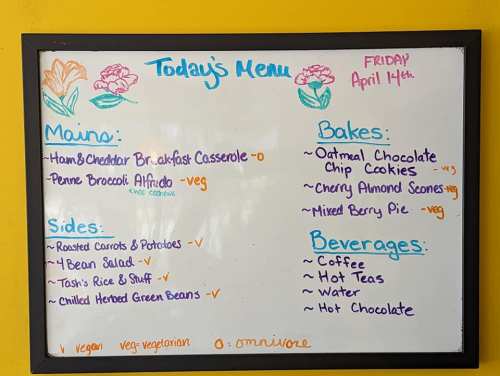 Today's Menu
FRIDAY
April 14th
Mains:
~Ham & Cheddar Breakfast Casserole - O
~Penne Broccoli Alfredo - veg
Sides:
~Roasted Carrots & Potatoes - V
~4 Bean Salad - V
~Tash's Rice & Stuff - V
~Chilled Herbed Green Beans - V
Bakes:
~Oatmeal Chocolate
Chip Cookies - veg
~Cherry Almond Scones - veg
~Mixed Berry Pie - veg
Beverages:
~Coffee
~Hot Teas
~Water
~Hot Chocolate
V vegan veg=vegetarian O=omnivore